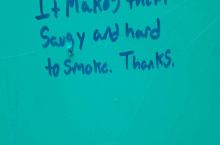 It Makes them
Saugy and hard
to smoke. Thanks.